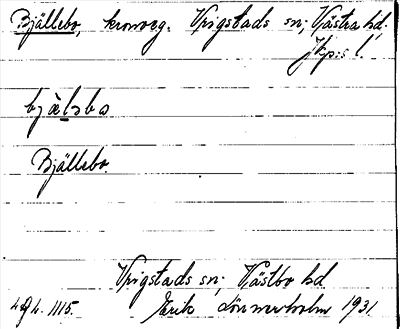 Bjällebo, kronoeg. Vrigstads sn; Västra hd.
Jkps l.
bjälsbo
Bjällebo.
Vrigstads sn; Västbo hd
Erik Lönnerholm 1931